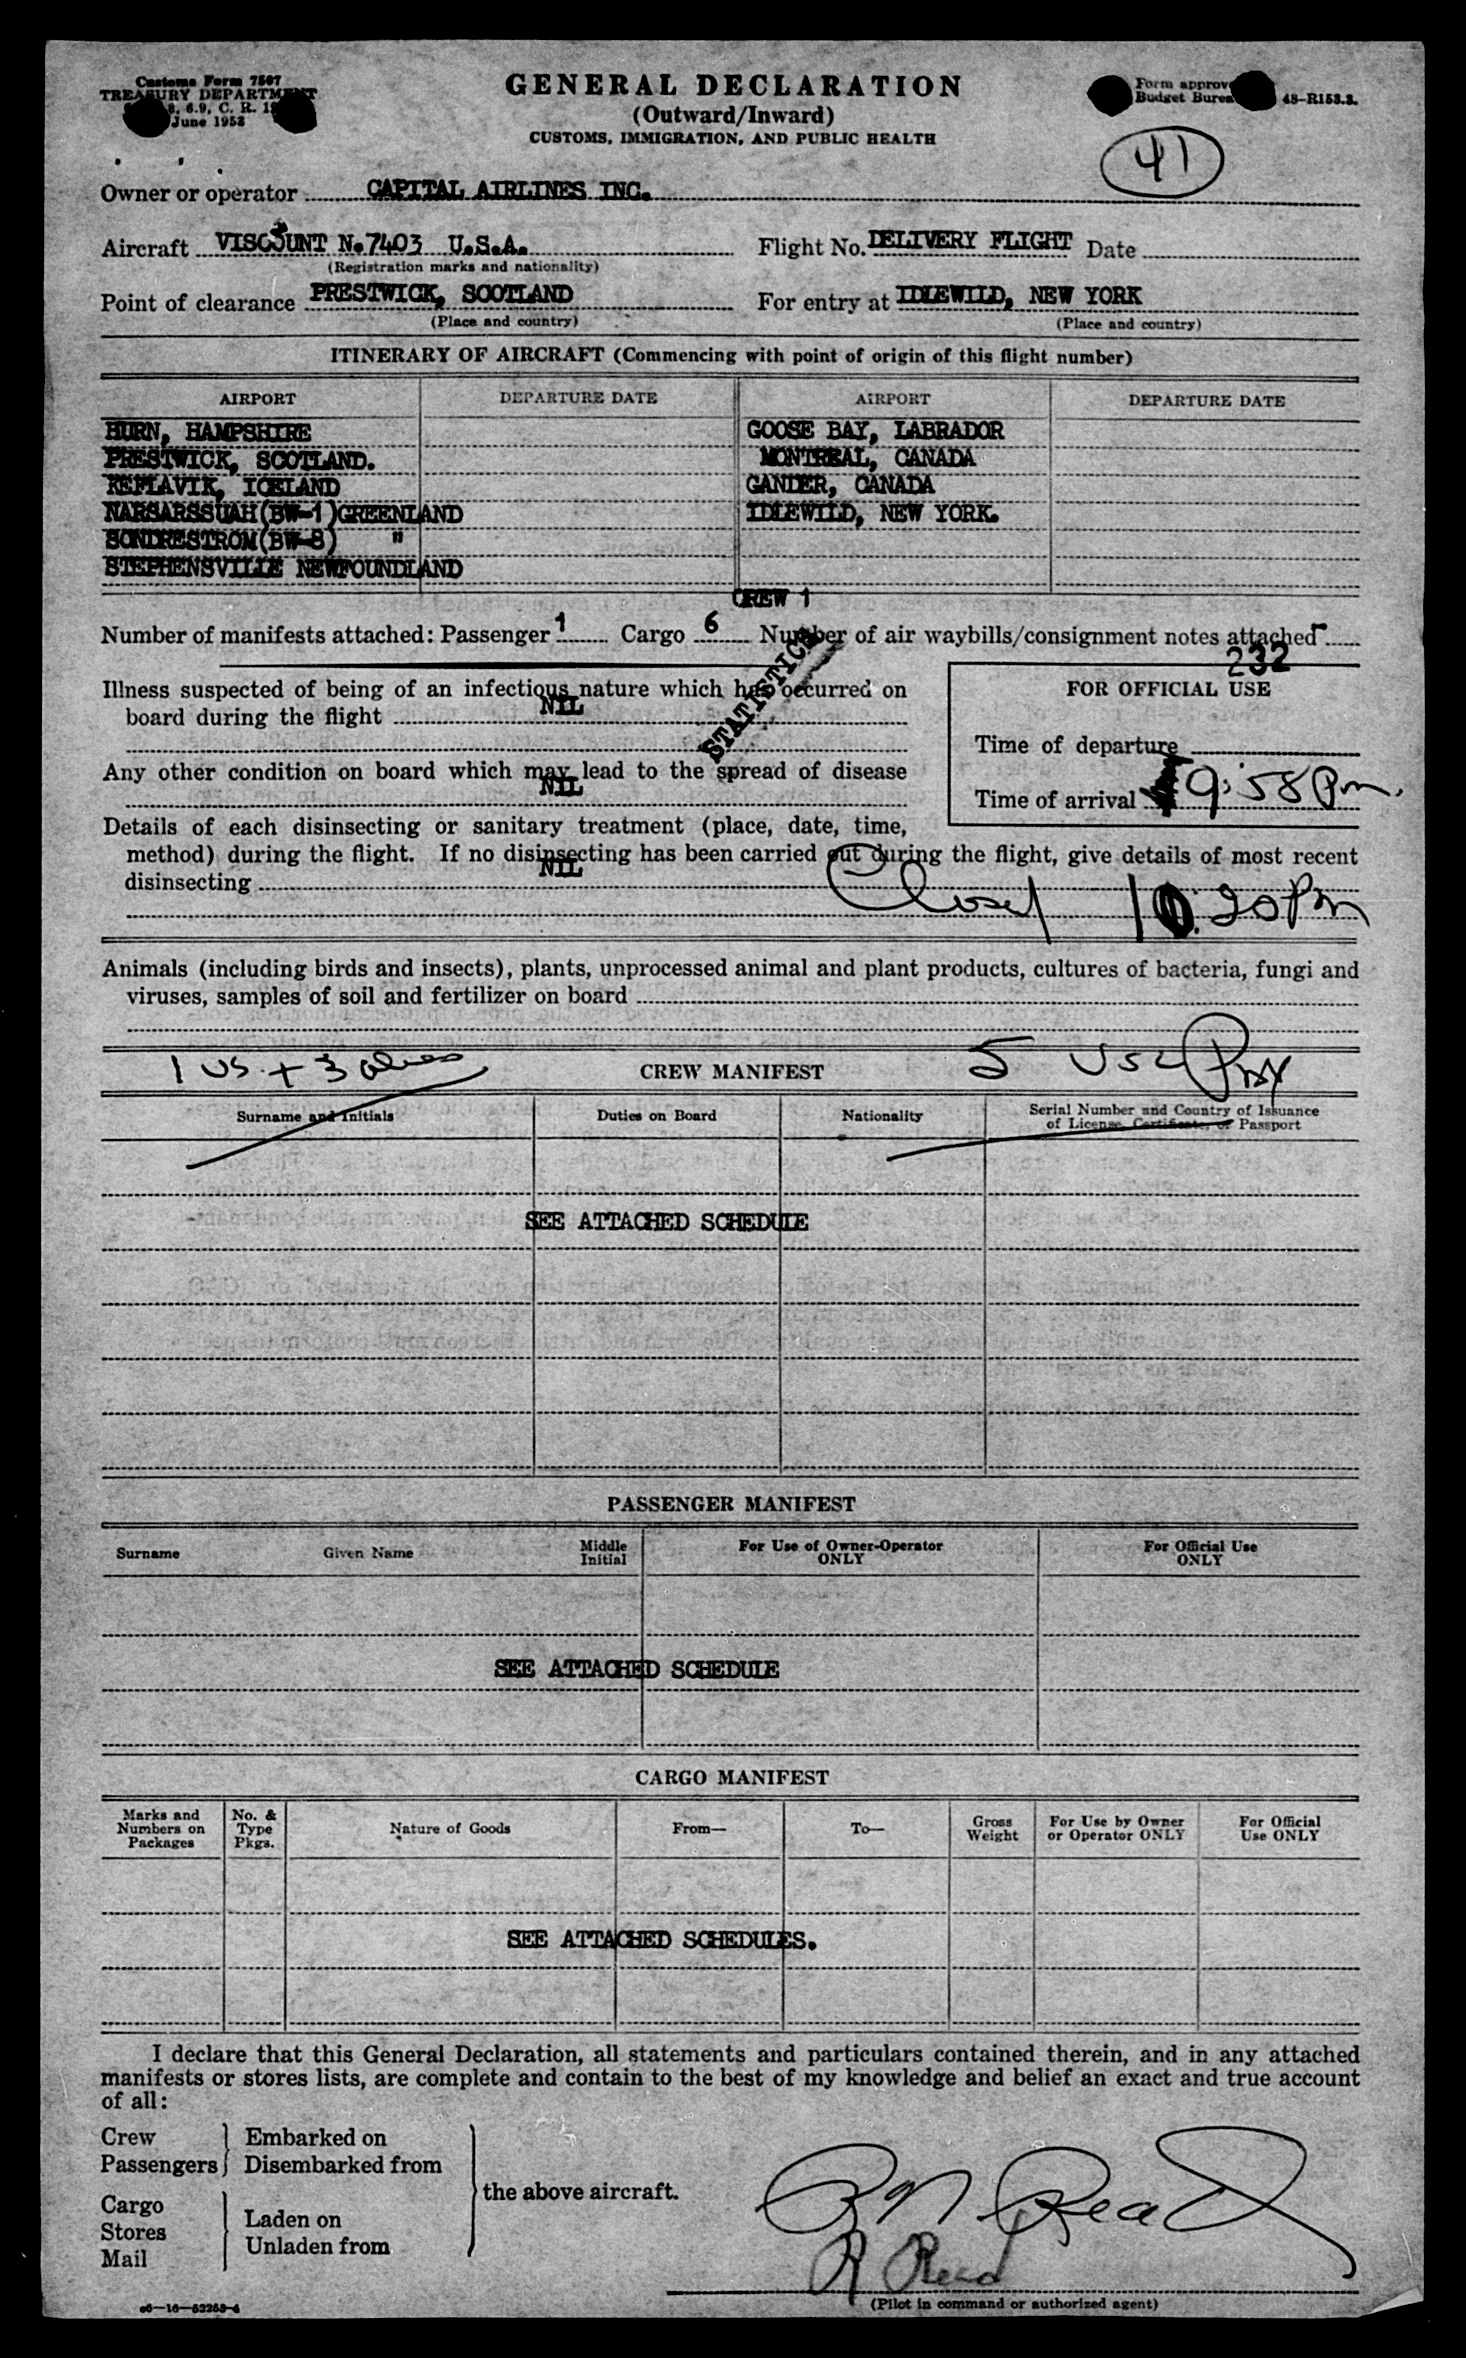 Customs Form 7507
TREASURY DEPARTMENT
6.9, C. R.
June 1953
GENERAL DECLARATION
(Outward/Inward)
CUSTOMS, IMMIGRATION, AND PUBLIC HEALTH
Form approv
Budget Burea 48-R153.3.
41
Owner or operator CAPITAL AIRLINES INC.
Aircraft VISCOUNT N.7403 U.S.A. Flight No. DELIVERY FLIGHT Date
(Registration marks and nationality)
Point of clearance PRESTWICK, SCOTLAND For entry at IDLEWILD, NEW YORK
(Place and country) (Place and country)
ITINERARY OF AIRCRAFT (Commencing with point of origin of this flight number)
AIRPORT DEPARTURE DATE AIRPORT DEPARTURE DATE
HURN, HAMPSHIRE GOOSE BAY, LABRADOR
PRESTWICK, SCOTLAND. MONTREAL, CANADA
KEFLAVIK, ICELAND GANDER, CANADA
NARSARSSUAH(BW-1)GREENLAND IDLEWILD, NEW YORK.
SONDRESTROM(BW-8) "
STEPHENSVILLE NEWFOUNDLAND
CREW 1
Number of manifests attached: Passenger 1 Cargo 6 Number of air waybills/consignment notes attached
232
STATISTICAL
Illness suspected of being of an infectious nature which has occurred on
board during the flight NIL
Any other condition on board which may lead to the spread of disease
NIL
FOR OFFICIAL USE
Time of departure
Time of arrival 9:58 Pm.
Details of each disinsecting or sanitary treatment (place, date, time,
method) during the flight. If no disinsecting has been carried out during the flight, give details of most recent
disinsecting NIL
Closed 10.20 Pm
Animals (including birds and insects), plants, unprocessed animal and plant products, cultures of bacteria, fungi and
viruses, samples of soil and fertilizer on board
1 US + 3 aliens
CREW MANIFEST
5 USC
Surname and Initials Duties on Board Nationality Serial Number and Country of Issuance
of License, Certificate, or Passport
SEE ATTACHED SCHEDULE
PASSENGER MANIFEST
Surname Given Name Middle
Initial For Use of Owner-Operator
ONLY For Official Use
ONLY
SEE ATTACHED SCHEDULE
CARGO MANIFEST
Marks and
Numbers on
Packages No. &
Type
Pkgs. Nature of Goods From— To— Gross
Weight For Use by Owner
or Operator ONLY For Official
Use ONLY
SEE ATTACHED SCHEDULES.
I declare that this General Declaration, all statements and particulars contained therein, and in any attached
manifests or stores lists, are complete and contain to the best of my knowledge and belief an exact and true account
of all:
Crew Embarked on
Passengers Disembarked from
the above aircraft.
Cargo
Stores Laden on
Mail Unladen from
R Read
(Pilot in command or authorized agent)
c6—16—52253-4